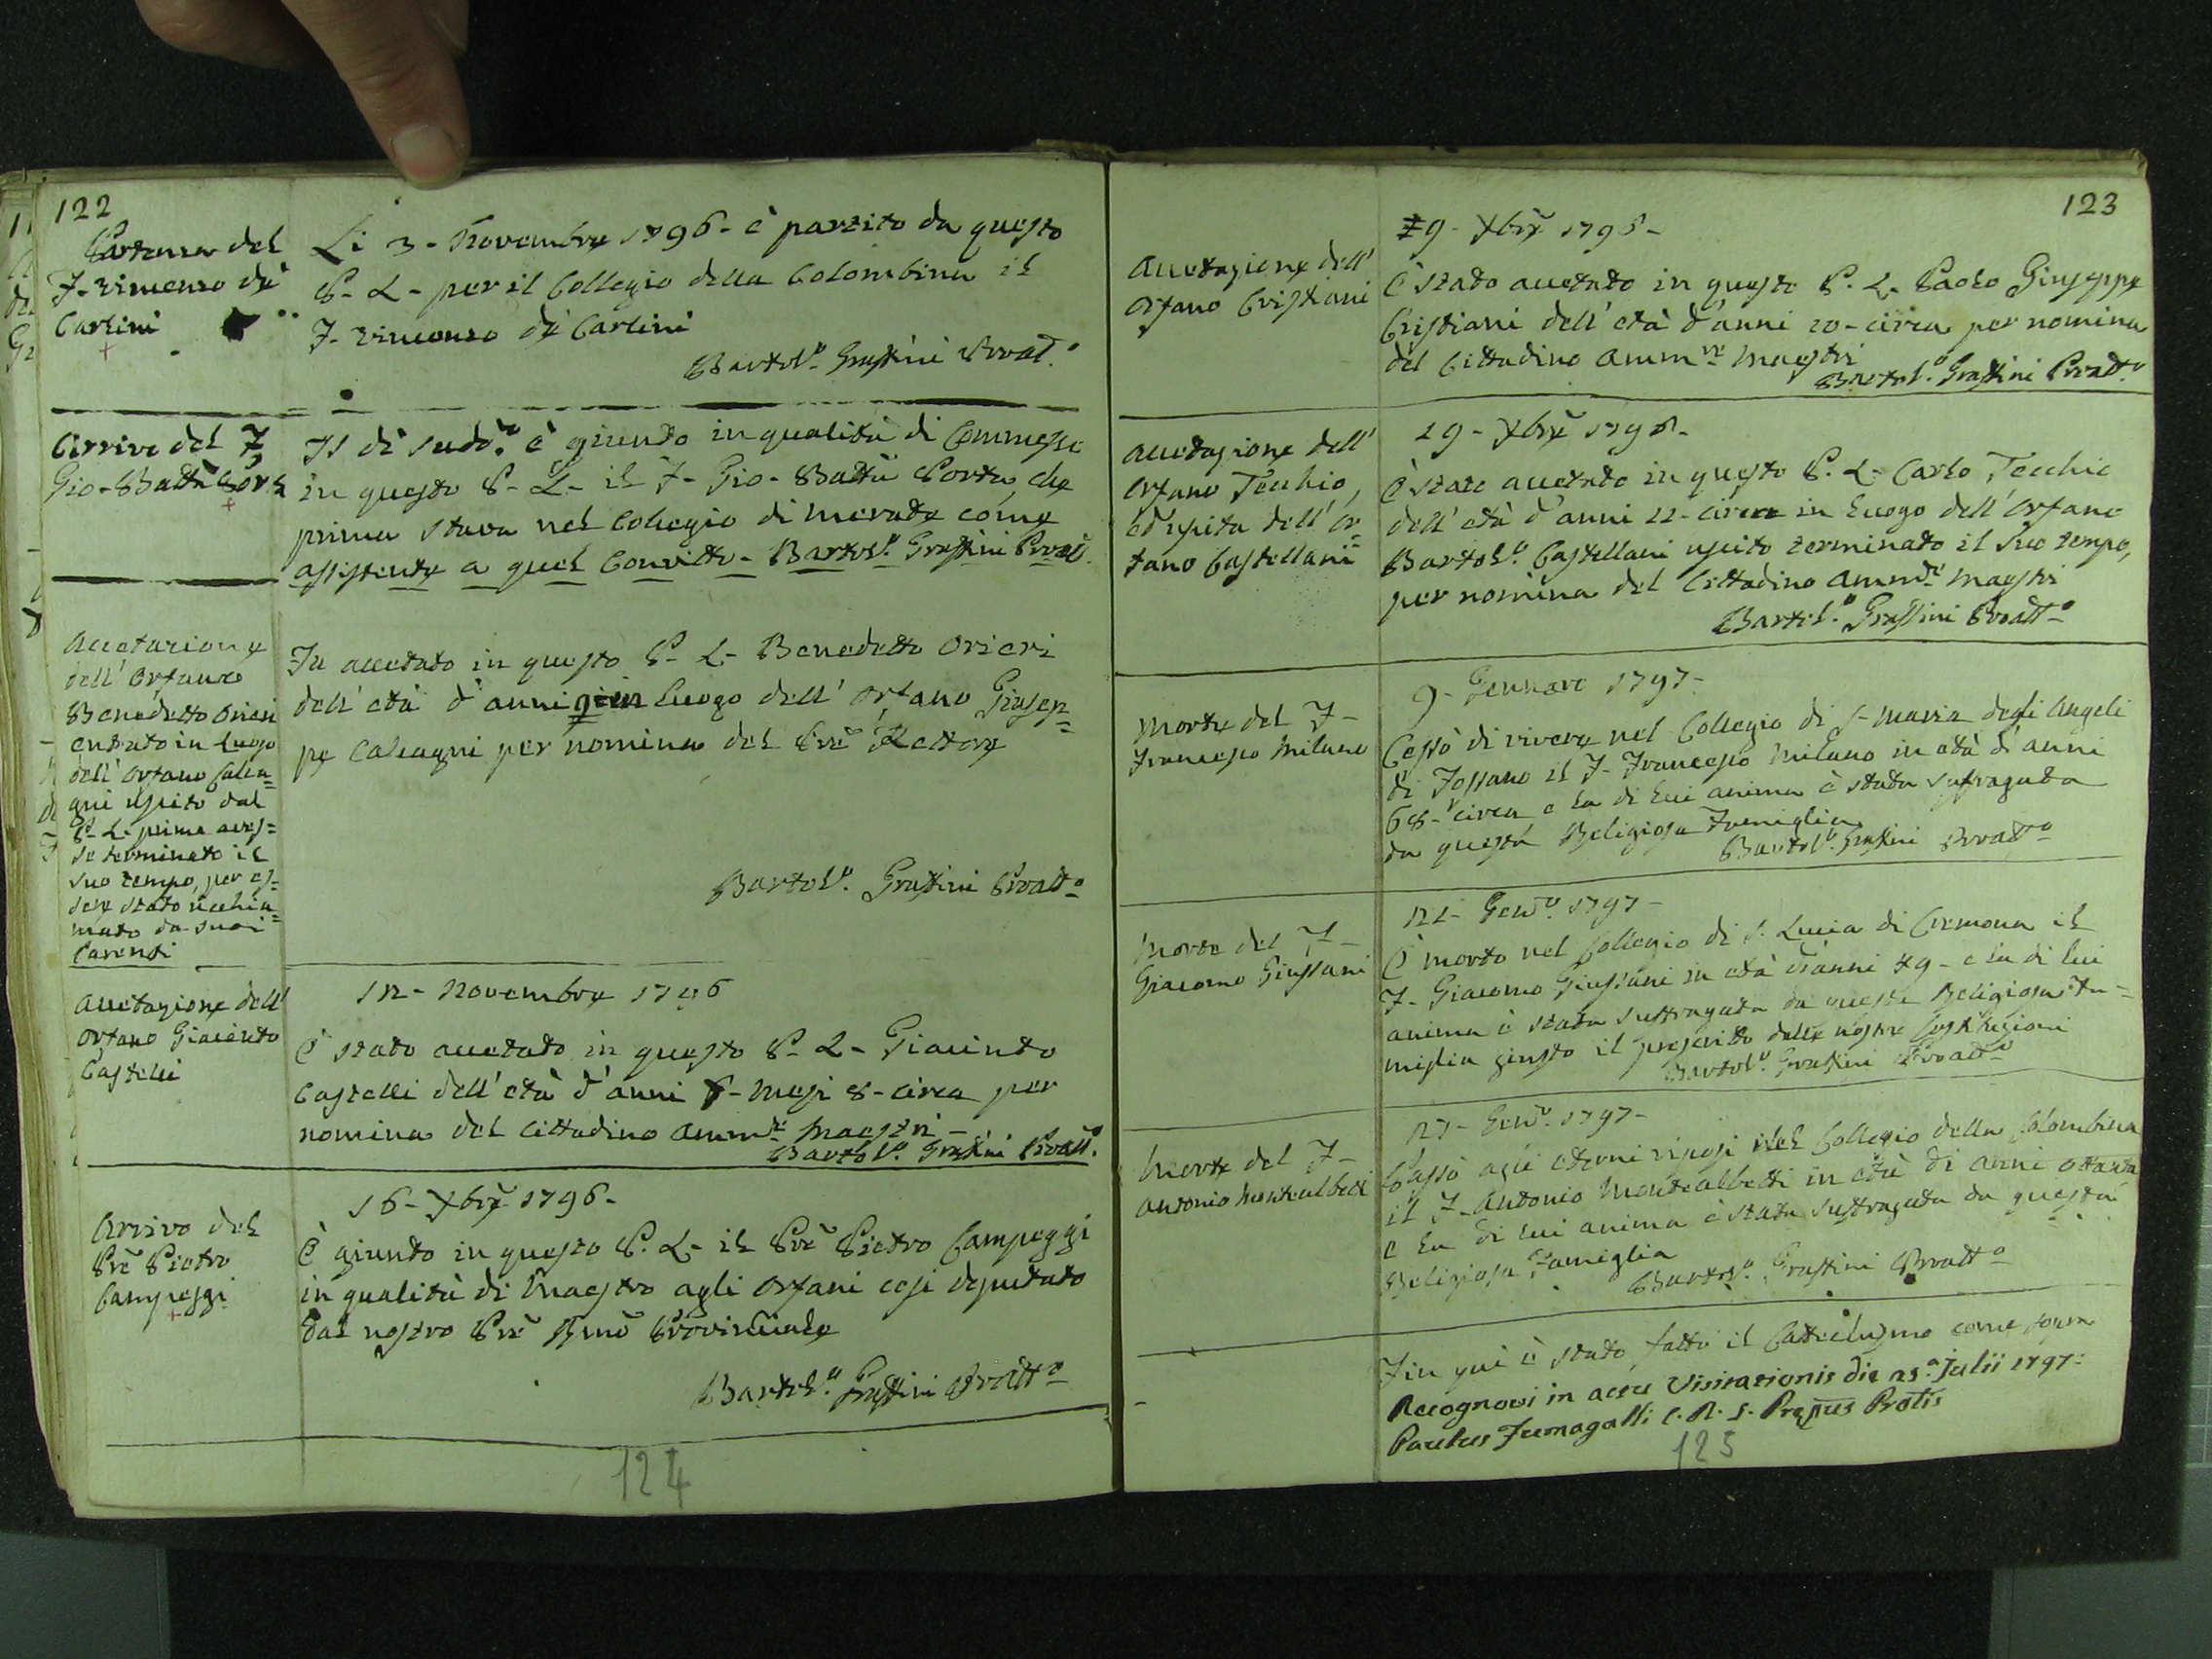 122
Partenza del
F. Vincenzo de
Carlini
Li 3 - Novembre 1796 - è partito da questo
P. L. per il Collegio della Colombina il
F. Vincenzo de Carlini
Bartolº. Grassini Proattº.
Arrivo del F.
Gio. Battª Porta
Il dì sudº. è giunto in qualità di Commesso
in questo P. L. il F. Gio. Battª Porta, che
prima stava nel Collegio di Merate come
assistente a quel Convitto - Bartolº. Grassini Proattº.
Accetazione
dell' Orfano
Benedetto Orieri
entrato in luogo
dell' Orfano Calca=
gni uscito dal
P. L. prima aves=
se terminato il
suo tempo, per es=
sere stato richia=
mato da suoi
Parenti
Fu accetato in questo P. L. Benedetto Orieri
dell' età d' anni 9 in luogo dell' Orfano Giusep=
pe Calcagni per nomina del Prē Rettore
Bartolº. Grassini Proattº
Accetazione dell'
Orfano Giacinto
Castelli
12 - Novembre 1796
È stato accetato in questo P. L. Giacinto
Castelli dell' età d' anni - mesi 8 - circa per
nomina del Cittadino Ammre Maestri -
Bartolº. Grassini Proattº.
Arrivo del
Prē Pietro
Campeggi
16 - Xbrē 1796 -
È giunto in questo P. L. il Prē Pietro Campeggi
in qualità di Maestro agli Orfani così deputato
dal nostro Prē Rmō Provinciale
Bartolº. Grassini Proattº
124
123
Accetazione dell'
Orfano Cristiani
29 - Xbrē 1796 -
È stato accetato in questo P. L. Paolo Giuseppe
Cristiani dell' età d' anni 10 - circa per nomina
del Cittadino Ammre Maestri
Bartolº. Grassini Proattº
Accetazione dell'
Orfano Tecchio,
ed uscita dell' Or=
fano Castellani
29 - Xbrē 1796 -
È stato accetato in questo P. L. Carlo Tecchio
dell' età d' anni 11 - circa in luogo dell' Orfano
Bartolº. Castellani uscito terminato il suo tempo,
per nomina del Cittadino Ammre Maestri
Bartolº. Grassini Proattº
Morte del F.
Francesco Milano
9 - Gennaro 1797 -
Cessò di vivere nel Collegio di S. Maria degli Angeli
di Fossano il F. Francesco Milano in età d' anni
68 - circa e la di lui anima è stata suffragata
da questa Religiosa Famiglia
Bartolº. Grassini Proattº
Morte del F.
Giacomo Giussani
Genº. 1797 -
È morto nel Collegio di S. Lucia di Cremona il
F. Giacomo Giussani in età d'anni 49 - e la di lui
anima è stata suffragata da questa Religiosa Fa=
miglia giusto il prescritto delle nostre Costituzioni
Bartolº. Grassini Proattº
Morte del F.
Antonio Montealbetti
Genº. 1797 -
Passò agli eterni riposi nel Collegio della Colombina
il F. Antonio Montealbetti in età di anni ottanta
e la di lui anima è stata suffragata da questa
Religiosa Famiglia
Bartolº. Grassini Proattº
Fin quì è stato fatto il Catechismo come sopra
Recognovi in actu Visitationis die 25ª Julii 1797.
Paulus Fumagalli C. R. S. Prepus Protis
125